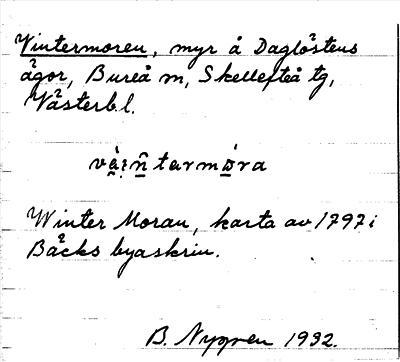 Vintermoren, myr å Daglöstens
ägor, Bureå m, Skellefteå tg,
Västerb.l.
Winter Moran, karta av 1797 i
Bäcks byaskrin.
B. Nygren 1932.